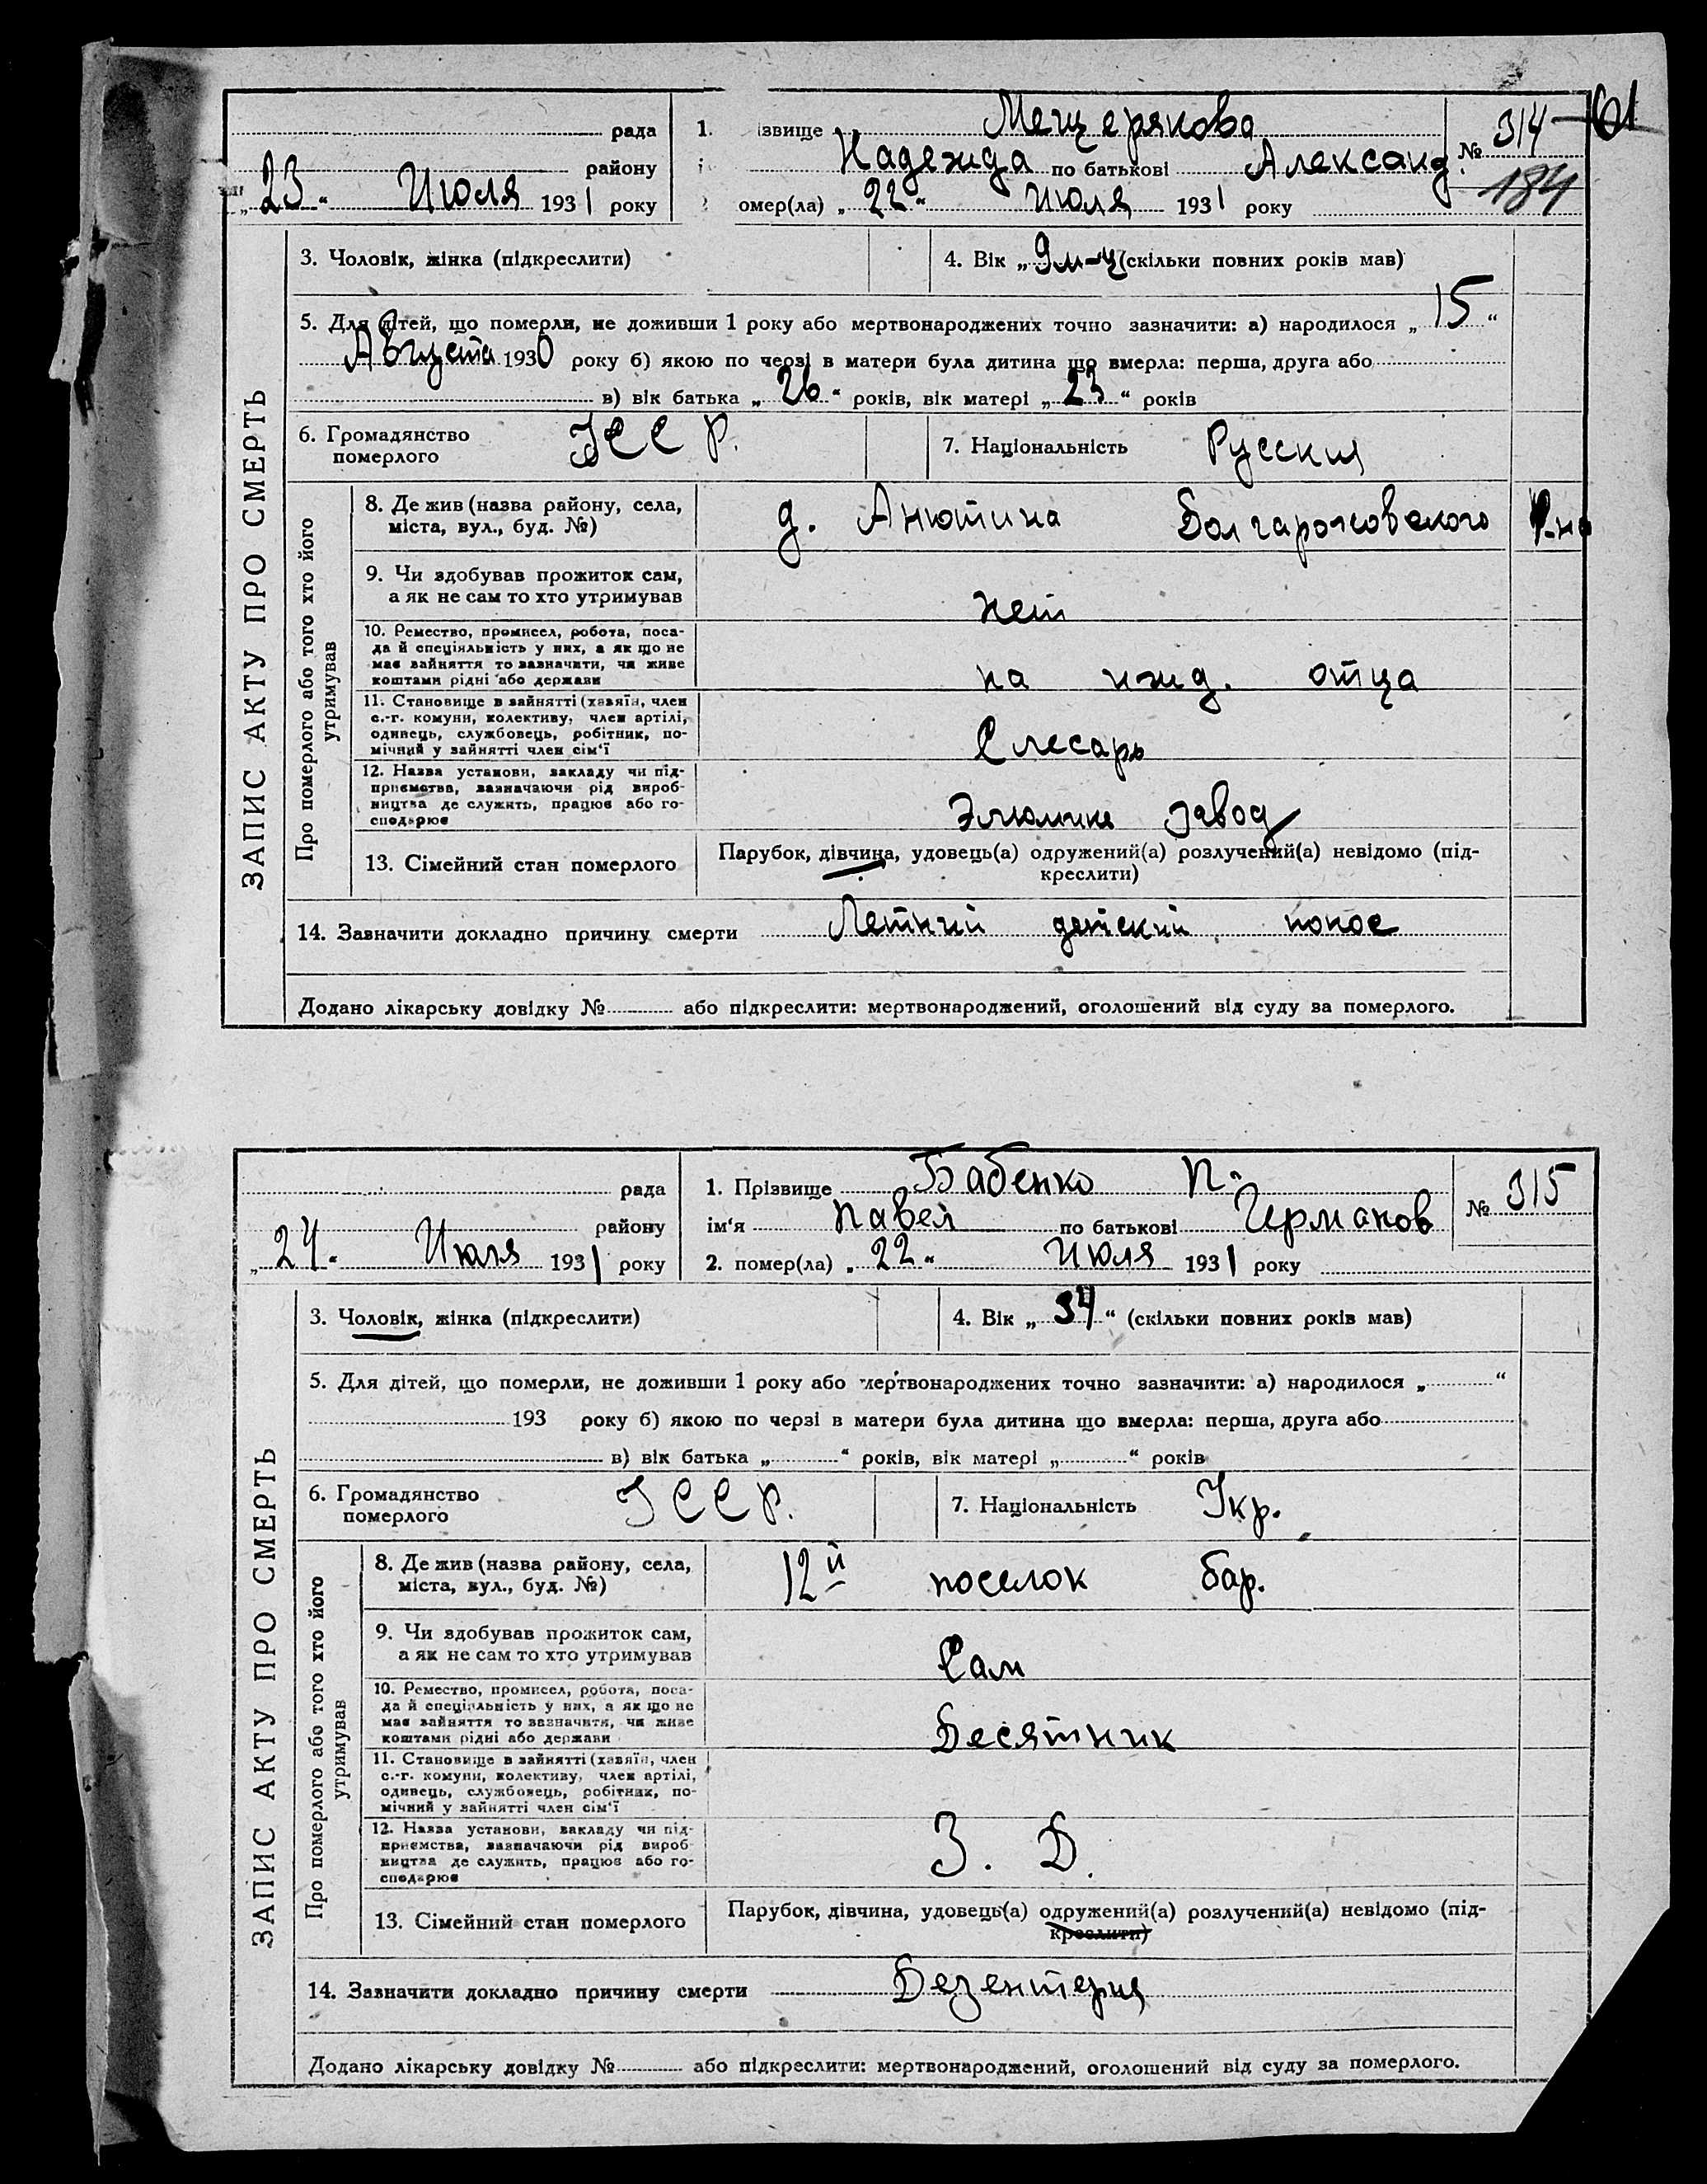 61
рада
району
„23“ Июля 1931 року
1. ізвище Мещерякова
Надежида по батькові Александ.
омер(ла) „22“ Июля 1931 року
№ 314
184
3. Чоловік, жінка (підкреслити)
4. Вік „9 м-ц (скільки повних років мав)
5. Для дітей, що померли, не доживши 1 року або мертвонароджених точно зазначити: а) народилося „15“
Августа 1930 року б) якою по черзі в матери була дитина що вмерла: перша, друга або
в) вік батька „26“ років, вік матері „23“ років
6. Громадянство
померлого
УССР.
7. Національність Русския
ЗАПИС АКТУ ПРО СМЕРТЬ
Про померлого або того хто його
утримував
8. Де жив (назва району, села,
міста, вул., буд. №)
д. Анютина р-на
9. Чи здобував прожиток сам,
а як не сам то хто утримував
нет
10. Ремество, промисел, робота, поса-
да й спеціяльність у них, а як що не
має зайняття то зазначити, чи живе
коштами рідні або держави
на ижд. отца
11. Становище в зайнятті (хазяїн, член
с.-г. комуни, колективу, член артілі,
одинець, службовець, робітник, по-
мічний у зайнятті член сім'ї
Слесарь
12. Назва установи, закладу чи під-
приємства, зазначаючи рід вироб-
ництва де служить, працює або го-
сподарює
завод
13. Сімейний стан померлого
Парубок, дівчина, удовець(а) одружений(а) розлучений(а) невідомо (під-
креслити)
14. Зазначити докладно причину смерти Летний детский понос
Додано лікарську довідку № або підкреслити: мертвонароджений, оголошений від суду за померлого.
рада
району
„24“ Июля 1931 року
1. Прізвище Бабенко П.
ім'я Павел по батькові Германов
2. помер(ла) „22“ Июля 1931 року
№ 315
3. Чоловік, жінка (підкреслити)
4. Вік „34“ (скільки повних років мав)
5. Для дітей, що померли, не доживши 1 року або мертвонароджених точно зазначити: а) народилося „ “
193 року б) якою по черзі в матери була дитина що вмерла: перша, друга або
в) вік батька „ “ років, вік матері „ “ років
6. Громадянство
померлого
УССР.
7. Національність Укр.
ЗАПИС АКТУ ПРО СМЕРТЬ
Про померлого або того хто його
утримував
8. Де жив (назва району, села,
міста, вул., буд. №)
12й поселок бар.
9. Чи здобував прожиток сам,
а як не сам то хто утримував
Сам
10. Ремество, промисел, робота, поса-
да й спеціяльність у них, а як що не
має зайняття то зазначити, чи живе
коштами рідні або держави
Десятник
11. Становище в зайнятті (хазяїн, член
с.-г. комуни, колективу, член артілі,
одинець, службовець, робітник, по-
мічний у зайнятті член сім'ї
12. Назва установи, закладу чи під-
приємства, зазначаючи рід вироб-
ництва де служить, працює або го-
сподарює
З. Д.
13. Сімейний стан померлого
Парубок, дівчина, удовець(а) одружений(а) розлучений(а) невідомо (під-
креслити)
14. Зазначити докладно причину смерти Дезентерия
Додано лікарську довідку № або підкреслити: мертвонароджений, оголошений від суду за померлого.